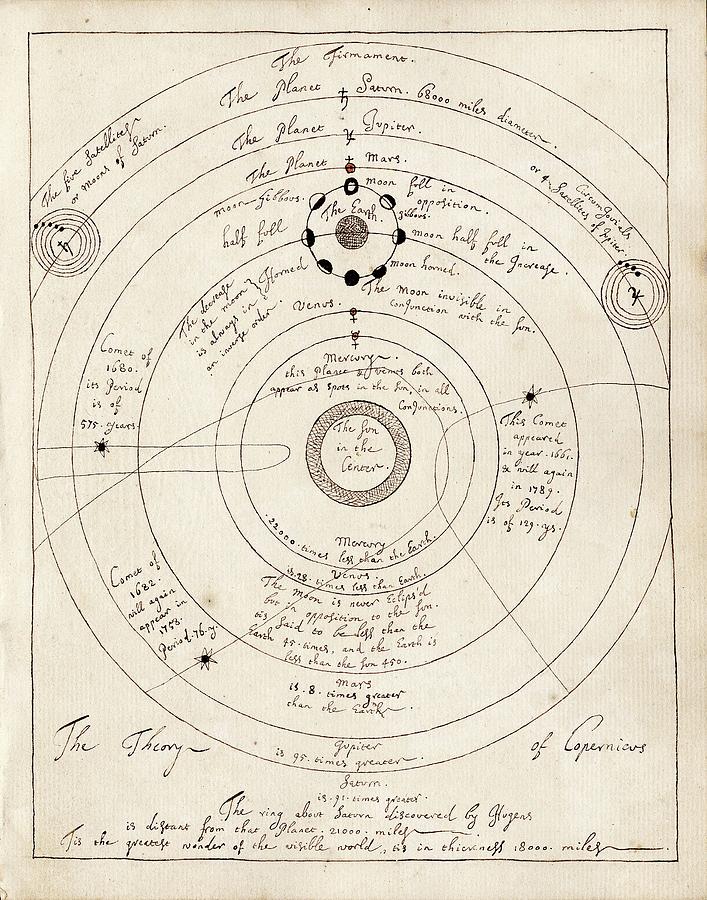 The Firmament.
The Planet ♄ Saturn. 68000 miles diameter.
The Planet ♃ Jupiter.
The Planet Mars.
The five Satellites
or Moons of Saturn.
or 4 Satellites of Jupiter
Circumjovials
moon full in
opposition.
moon Gibbous.
Gibbous.
The Earth.
half full
moon half full in
the Increase.
Horned
moon horned.
The decrease
in the moon
is always in
an inverse order.
The Moon invisible in
Conjunction with the Sun.
♄
♃
Venus.
Mercury.
this Planet & Venus both
appear as spots in the Sun, in all
Conjunctions.
Comet of
1680.
its Period
is of
575. years.
The Sun
in the
Center.
This Comet
appeared
in year. 1661.
& will again
in 1789.
Its Period
is of 129. ys.
Mercury
22000. times less than the Earth.
Venus.
is. 28. times less than Earth.
Comet of
1682.
will again
appear in
1758.
Period. 76. y.
The Moon is never Eclips'd
but in opposition to the Sun.
tis said to be less than the
Earth 45. times, and the Earth is
less than the Sun 450.
Mars
is. 8. times greater
than the Earth.
The Theory of Copernicus
Jupiter
is 95. times greater.
Saturn.
is. 91. times greater.
The ring about Saturn discovered by Hugens
is distant from that Planet. 21000. miles
Tis the greatest wonder of the visible world, tis in thickness 18000. miles